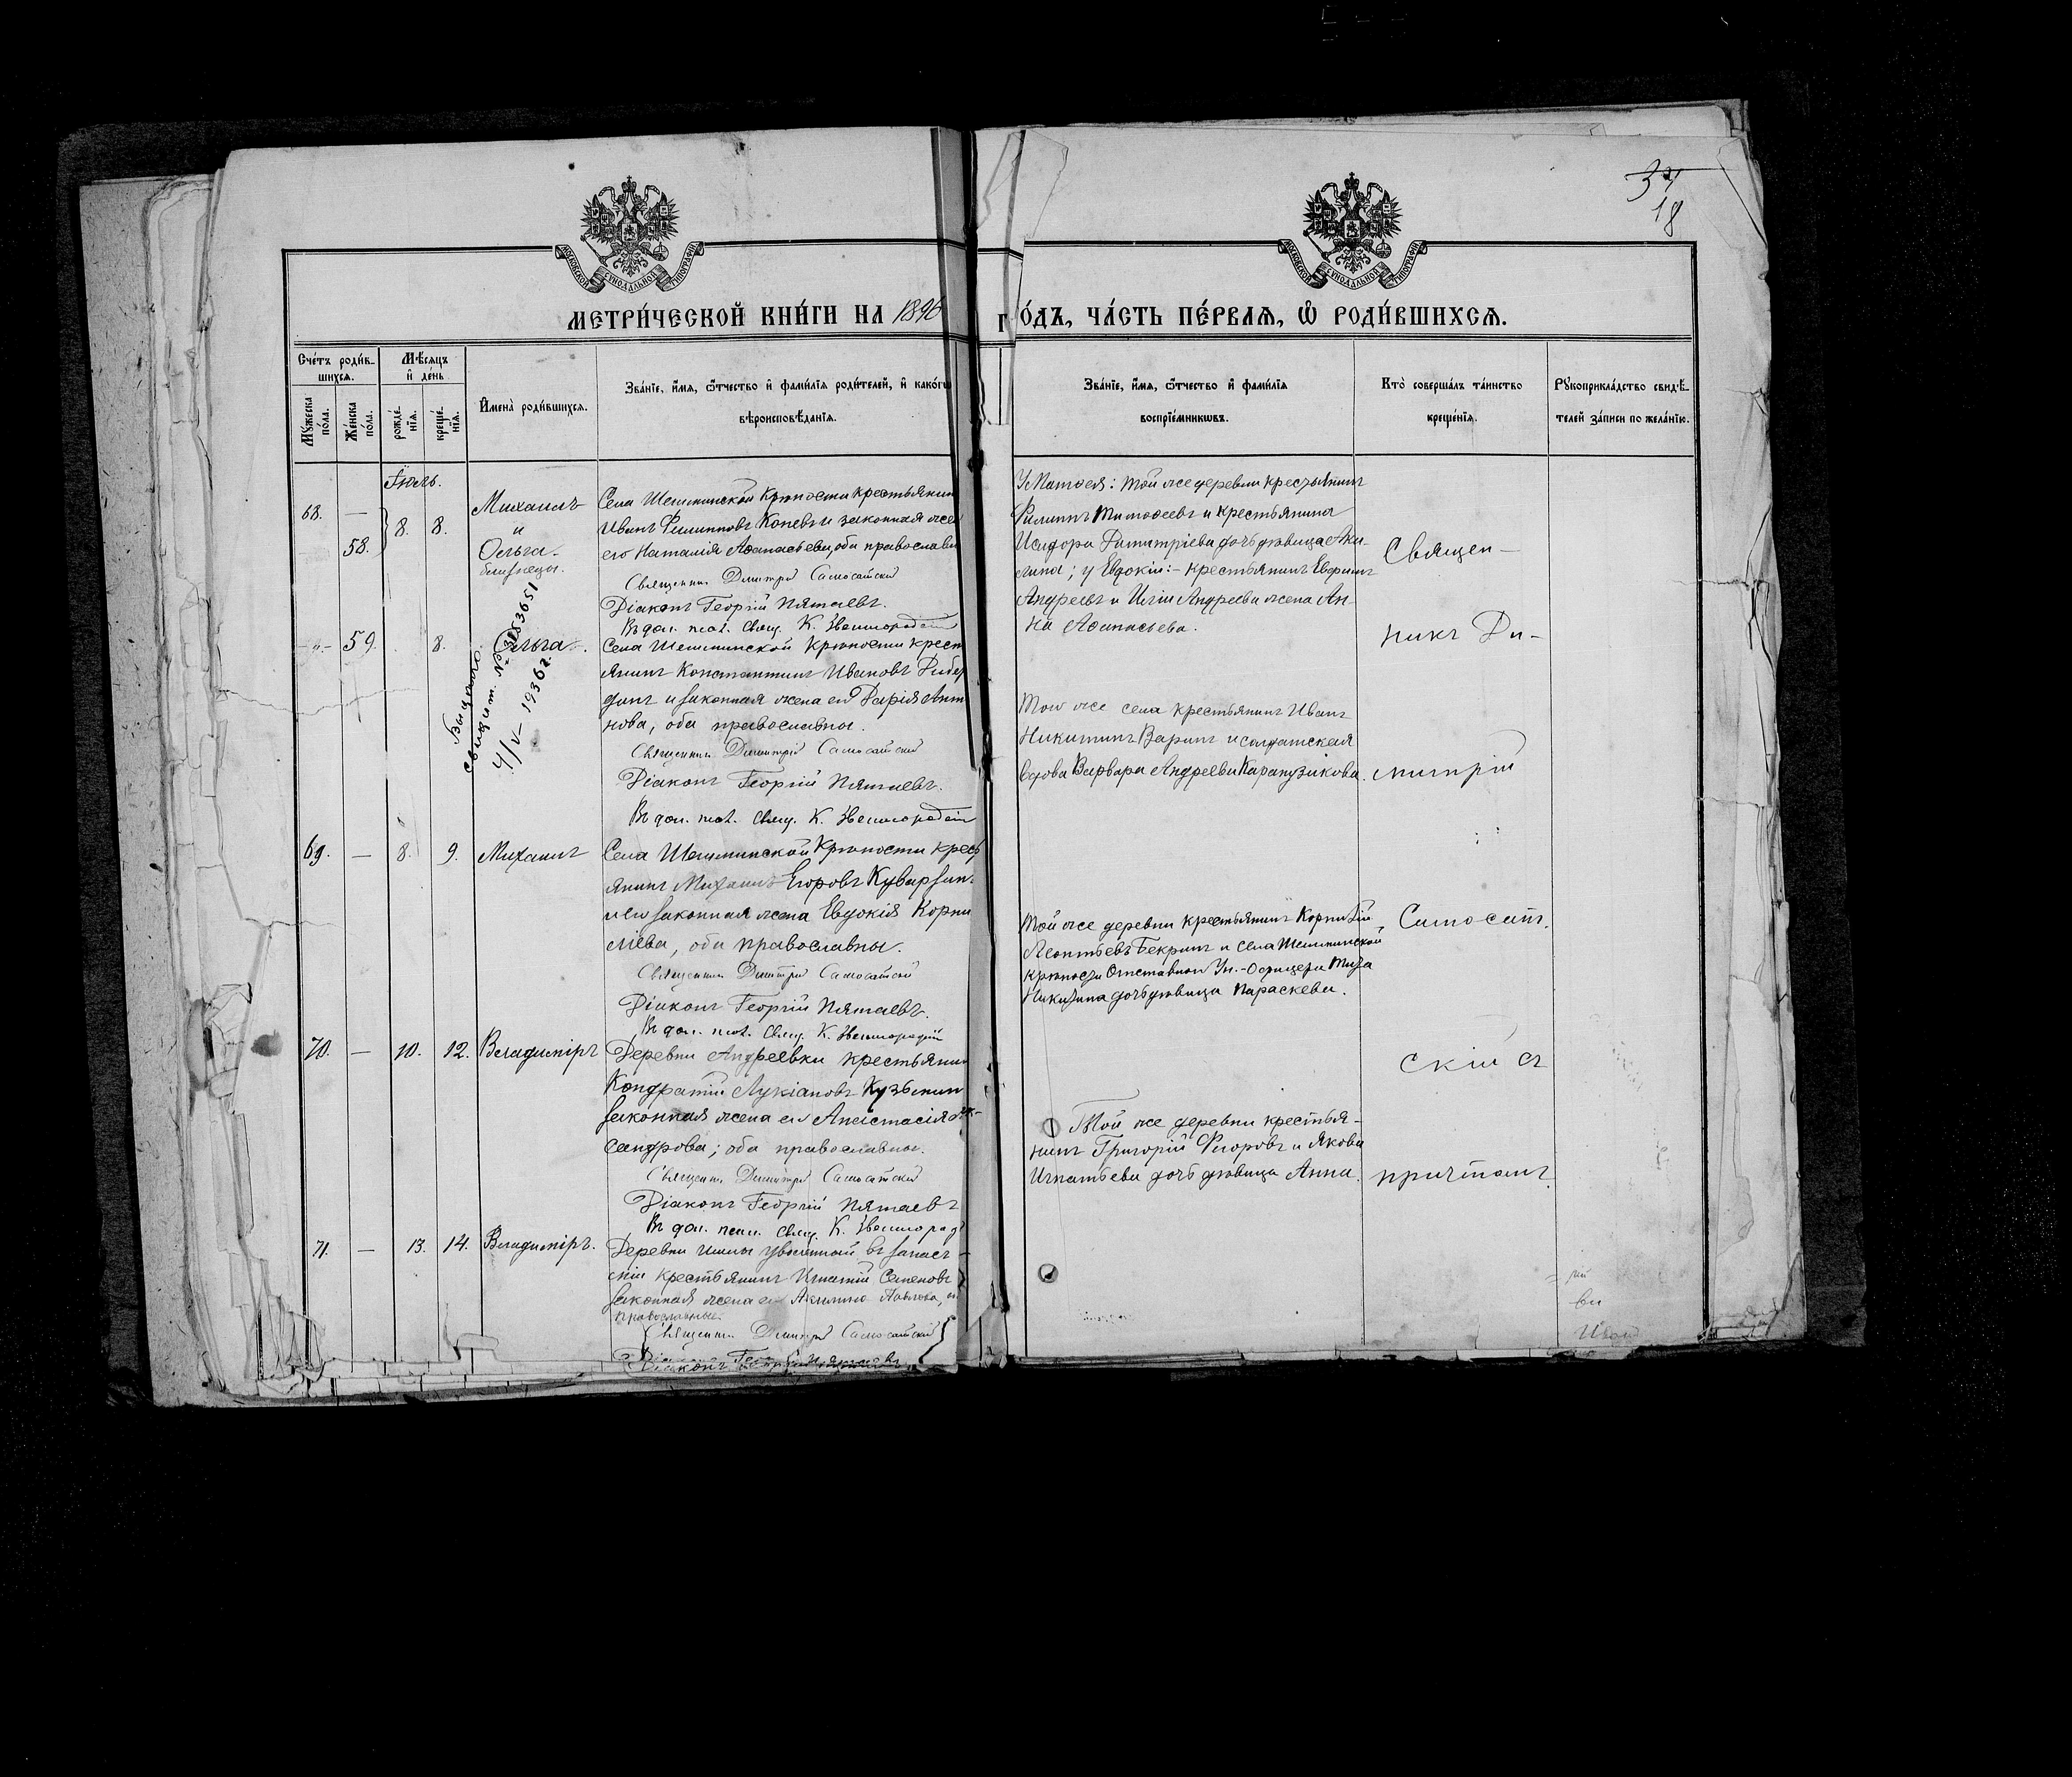 34
18
МОСКОВСКОЙ СѴНОДАЛЬНОЙ ТИПОГРАФІИ
МОСКОВСКОЙ СѴНОДАЛЬНОЙ ТИПОГРАФІИ
МЕТРИ́ЧЕСКОЙ КНИ́ГИ НА 1896
ГО́ДЪ, ЧА́СТЬ ПЕ́РВАѦ, Ѿ РОДИ́ВШИХСѦ.
Сче́тъ роди́в-
шихсѧ.
Мѣ́сѧцъ
и҆ де́нь
Мꙋ́жеска по́ла.
Же́нска по́ла.
рожде́-нїѧ.
креще́-нїѧ.
И҆мена̀ роди́вшихсѧ.
Зва́нїе, и҆́мѧ, ѻ҆́тчество и҆ фами́лїѧ роди́телей, и҆ како́гѡ
вѣроисповѣ́данїѧ.
Зва́нїе, и҆́мѧ, ѻ҆́тчество и҆ фами́лїѧ
воспрїе́мникѡвъ.
Кто̀ соверша́лъ та́инство
креще́нїѧ.
Рꙋкоприкла́дство свидѣ́-
телей за́писи по жела́нїю.
Іюль.
68. — 8. 8.
58.
Михаилъ
и
Ольга
близнецы.
Села Шешминской Крѣпости крестьянин
Иванъ Филипповъ Коневъ и законная жен
его Наталія Аѳанасьева, оба православн
Священникъ Димитрій Самосатскій
Діаконъ Георгій Пятаевъ.
Въ дол. псал. свящ. К. Звениградскій
У Матѳея: той же деревни крестьянинъ
Филиппъ Тимоѳеевъ и крестьянина
Исидора Димитріева дочь дѣвица Аки-
лина; у Евдокіи:- крестьянинъ Ефримъ
Андреевъ и Иліи Андреева жена Ан-
на Аѳанасьева.
-"- 59. 8. Ольга.
Выдано.
свидит. № 3183651
4/V - 1936 г.
Села Шешминской Крѣпости крест
янинъ Константинъ Ивановъ
динъ и законная жена его Дарія Анто
нова, оба православны.
Священникъ Димитрій Самосатскій
Діаконъ Георгій Пятаевъ.
Въ дол. псал. свящ. К. Звениградскій
Того же села крестьянинъ Иванъ
Никитинъ Варинъ и солдатская
вдова Варвара Андреева Карапузикова.
69. — 8. 9. Михаилъ
Села Шешминской Крѣпости кресть
янинъ Михаилъ Егоровъ Куварзин
и его законная жена Евдокія Корни
ліева, оба православны.
Священникъ Димитрій Самосатскій
Діаконъ Георгій Пятаевъ.
Въ дол. псал. свящ. К. Звениградскій
Той же деревни крестьянинъ Корнилій
Леонтьевъ Бекринъ и села Шешминской
крѣпости Отставного Ун.-Офицера Тита
Никитина дочь дѣвица Параскева.
70. — 10. 12. Владиміръ
Деревни Андреевки крестьянин
Кондратій Лукіановъ Кузьмин
законная жена его Анастасія Алек-
сандрова; оба православны.
Священникъ Димитрій Самосатскій
Діаконъ Георгій Пятаевъ
Въ дол. псал. свящ. К. Звениград
Той же деревни крестья-
нинъ Григорій Ѳедоровъ и Якова
Игнатьева дочь дѣвица Анна.
71. — 13. 14. Владиміръ.
Деревни уволенный въ запасъ
крестьянинъ Игнатій Семеновъ
законная жена его Акилина Павлова,
православные
Священникъ Димитрій Самосатскій
Діаконъ Георгій Пятаевъ
Священ-
никъ Ди-
митрій
Самосат.
скій съ
причтомъ.